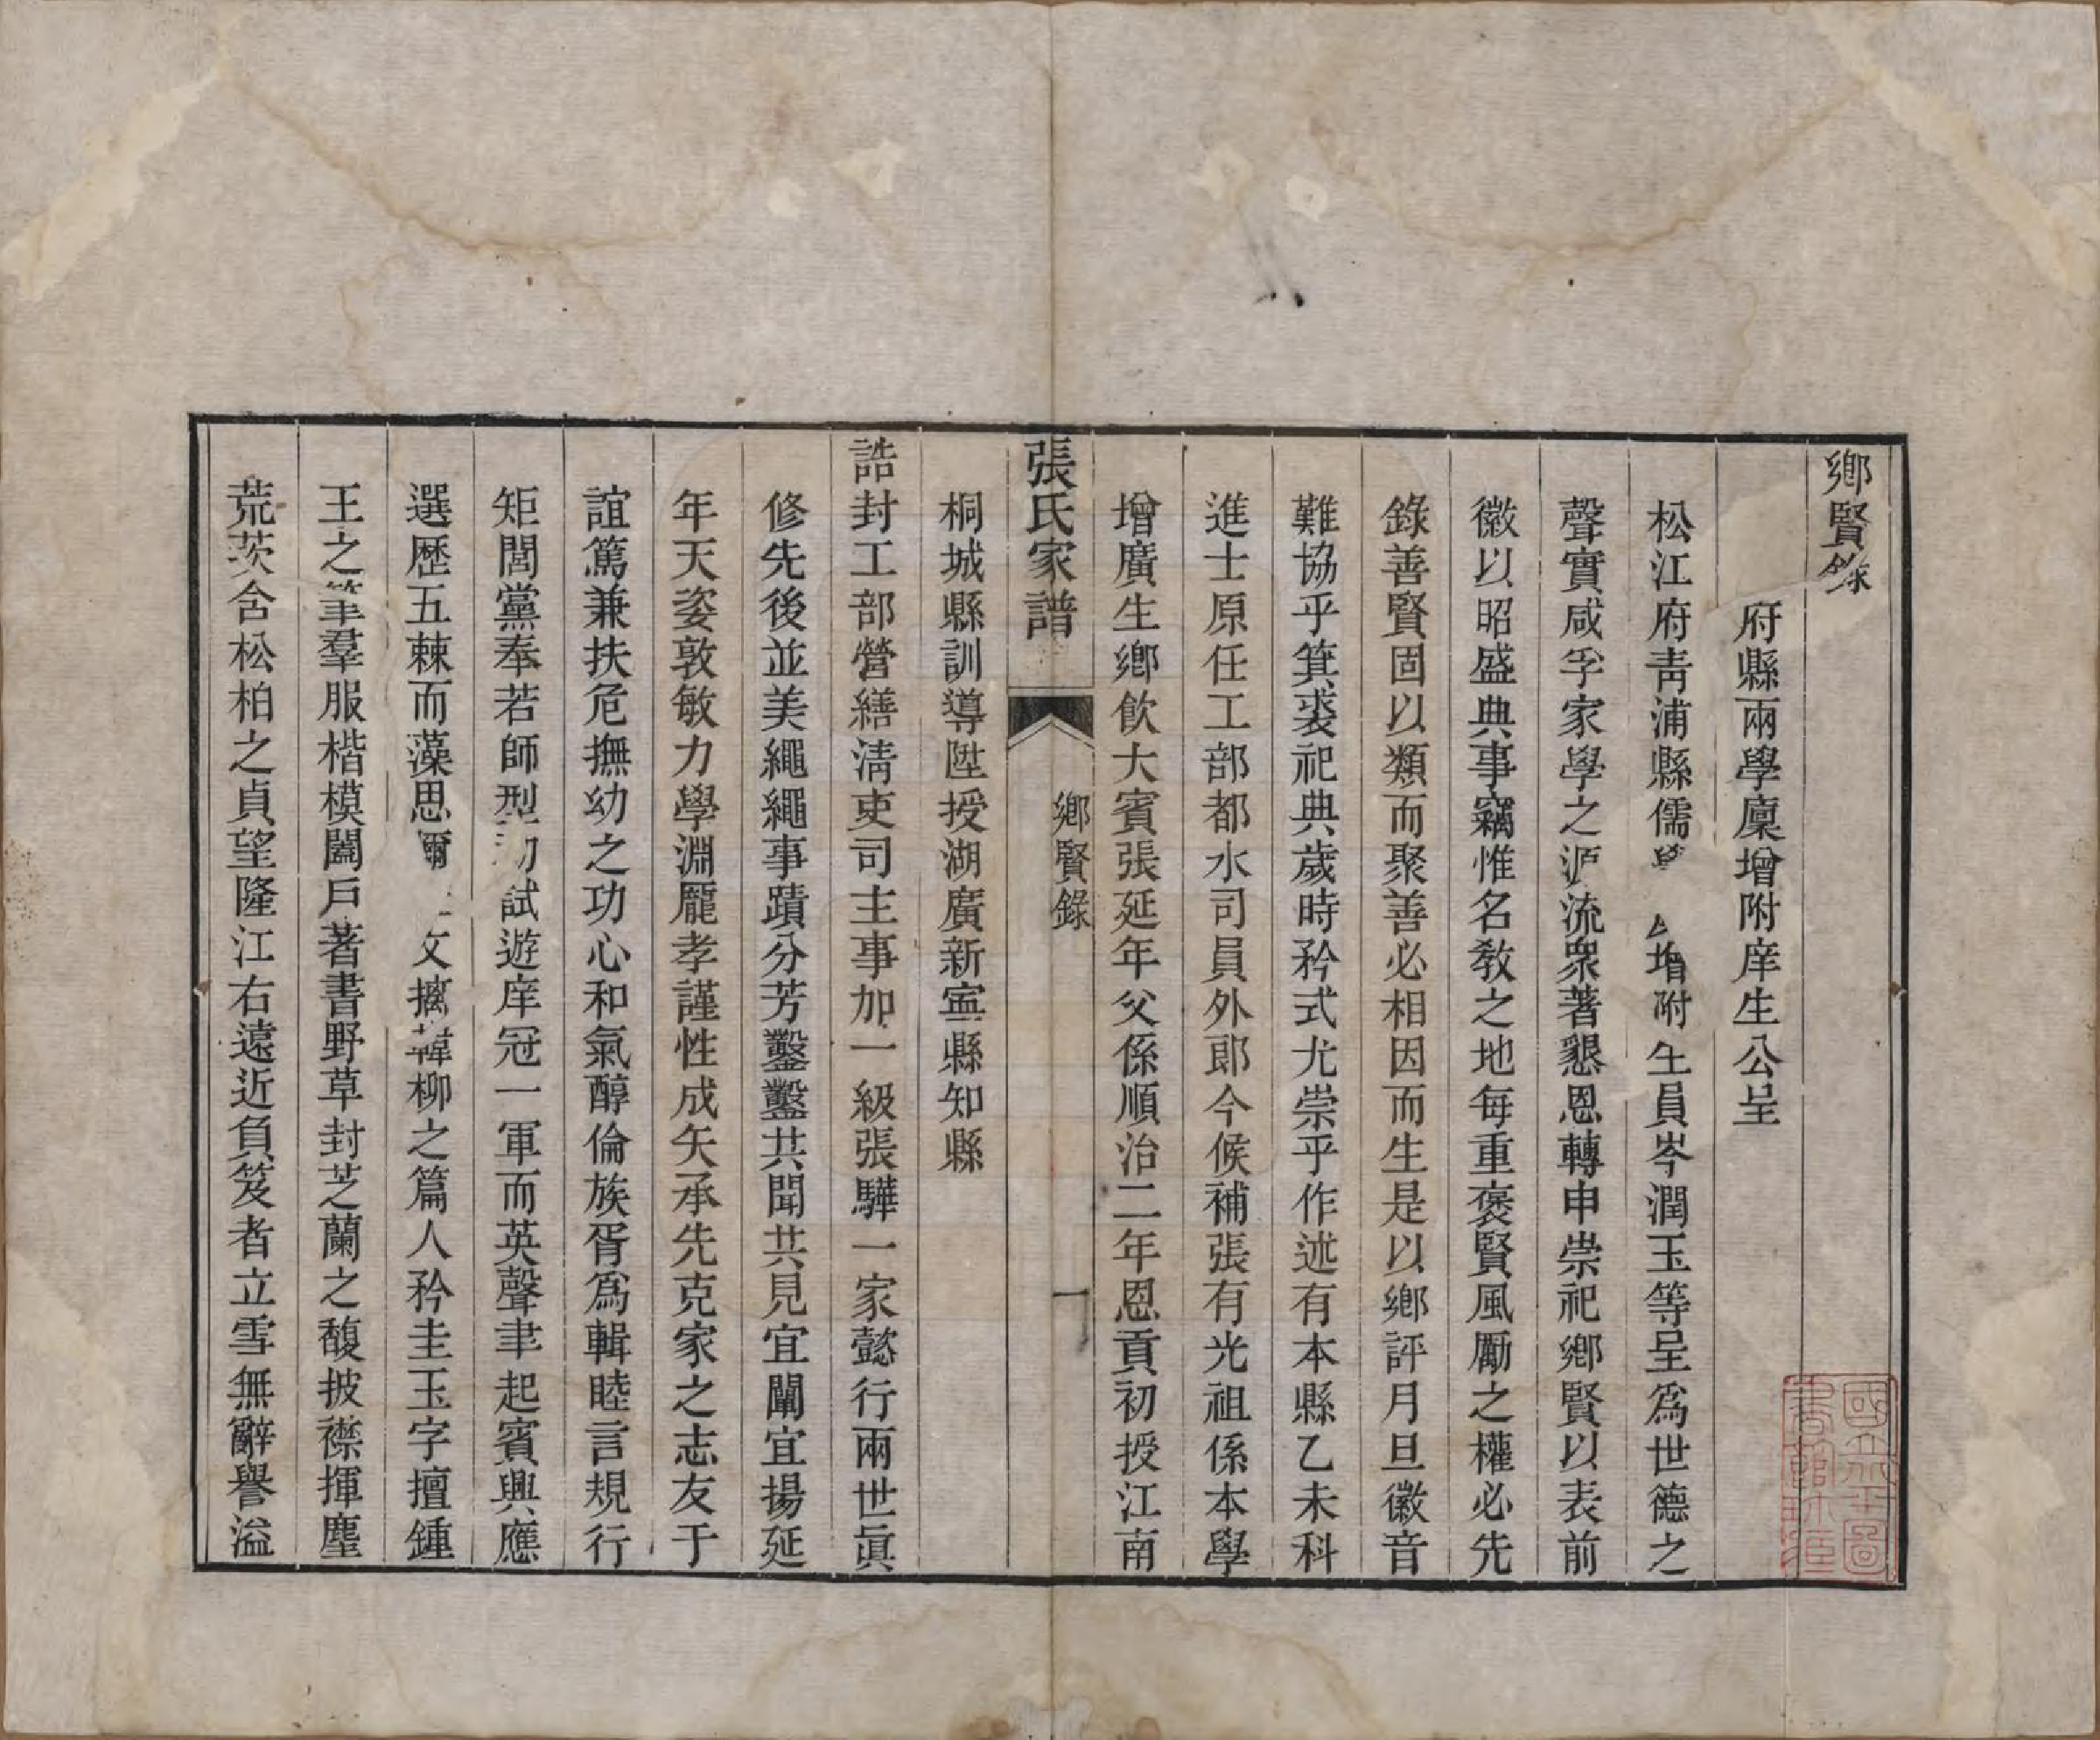 鄉賢錄
府縣兩學廩增附庠生公呈
松江府靑浦縣儒學 增附生員岑潤玉等呈爲世德之
聲實咸孚家學之源流衆著懇恩轉申崇祀鄉賢以表前
徽以昭盛典事竊惟名敎之地每重褒賢風勵之權必先
錄善賢固以類而聚善必相因而生是以鄉評月旦徽音
難協乎箕裘祀典歲時矜式尤崇乎作述有本縣乙未科
進士原任工部都水司員外郎今候補張有光祖係本學
增廣生鄉飲大賓張延年父係順治二年恩貢初授江南
張氏家譜
鄉賢錄
一
桐城縣訓導陞授湖廣新寧縣知縣
誥封工部營繕淸吏司主事加一級張驊一家懿行兩世眞
修先後並美繩繩事蹟分芳鑿鑿共聞共見宜闡宜揚延
年天姿敦敏力學淵龎孝謹性成矢承先克家之志友于
誼篤兼扶危撫幼之功心和氣醇倫族胥爲輯睦言規行
矩閭黨奉若師型初試遊庠冠一軍而英聲聿起賓興應
選歷五棘而藻思彌 文摛韓柳之篇人矜圭玉字擅鍾
王之筆羣服楷模闔戶著書野草封芝蘭之馥披襟揮塵
荒茨含松柏之貞望隆江右遠近負笈者立雪無辭譽溢